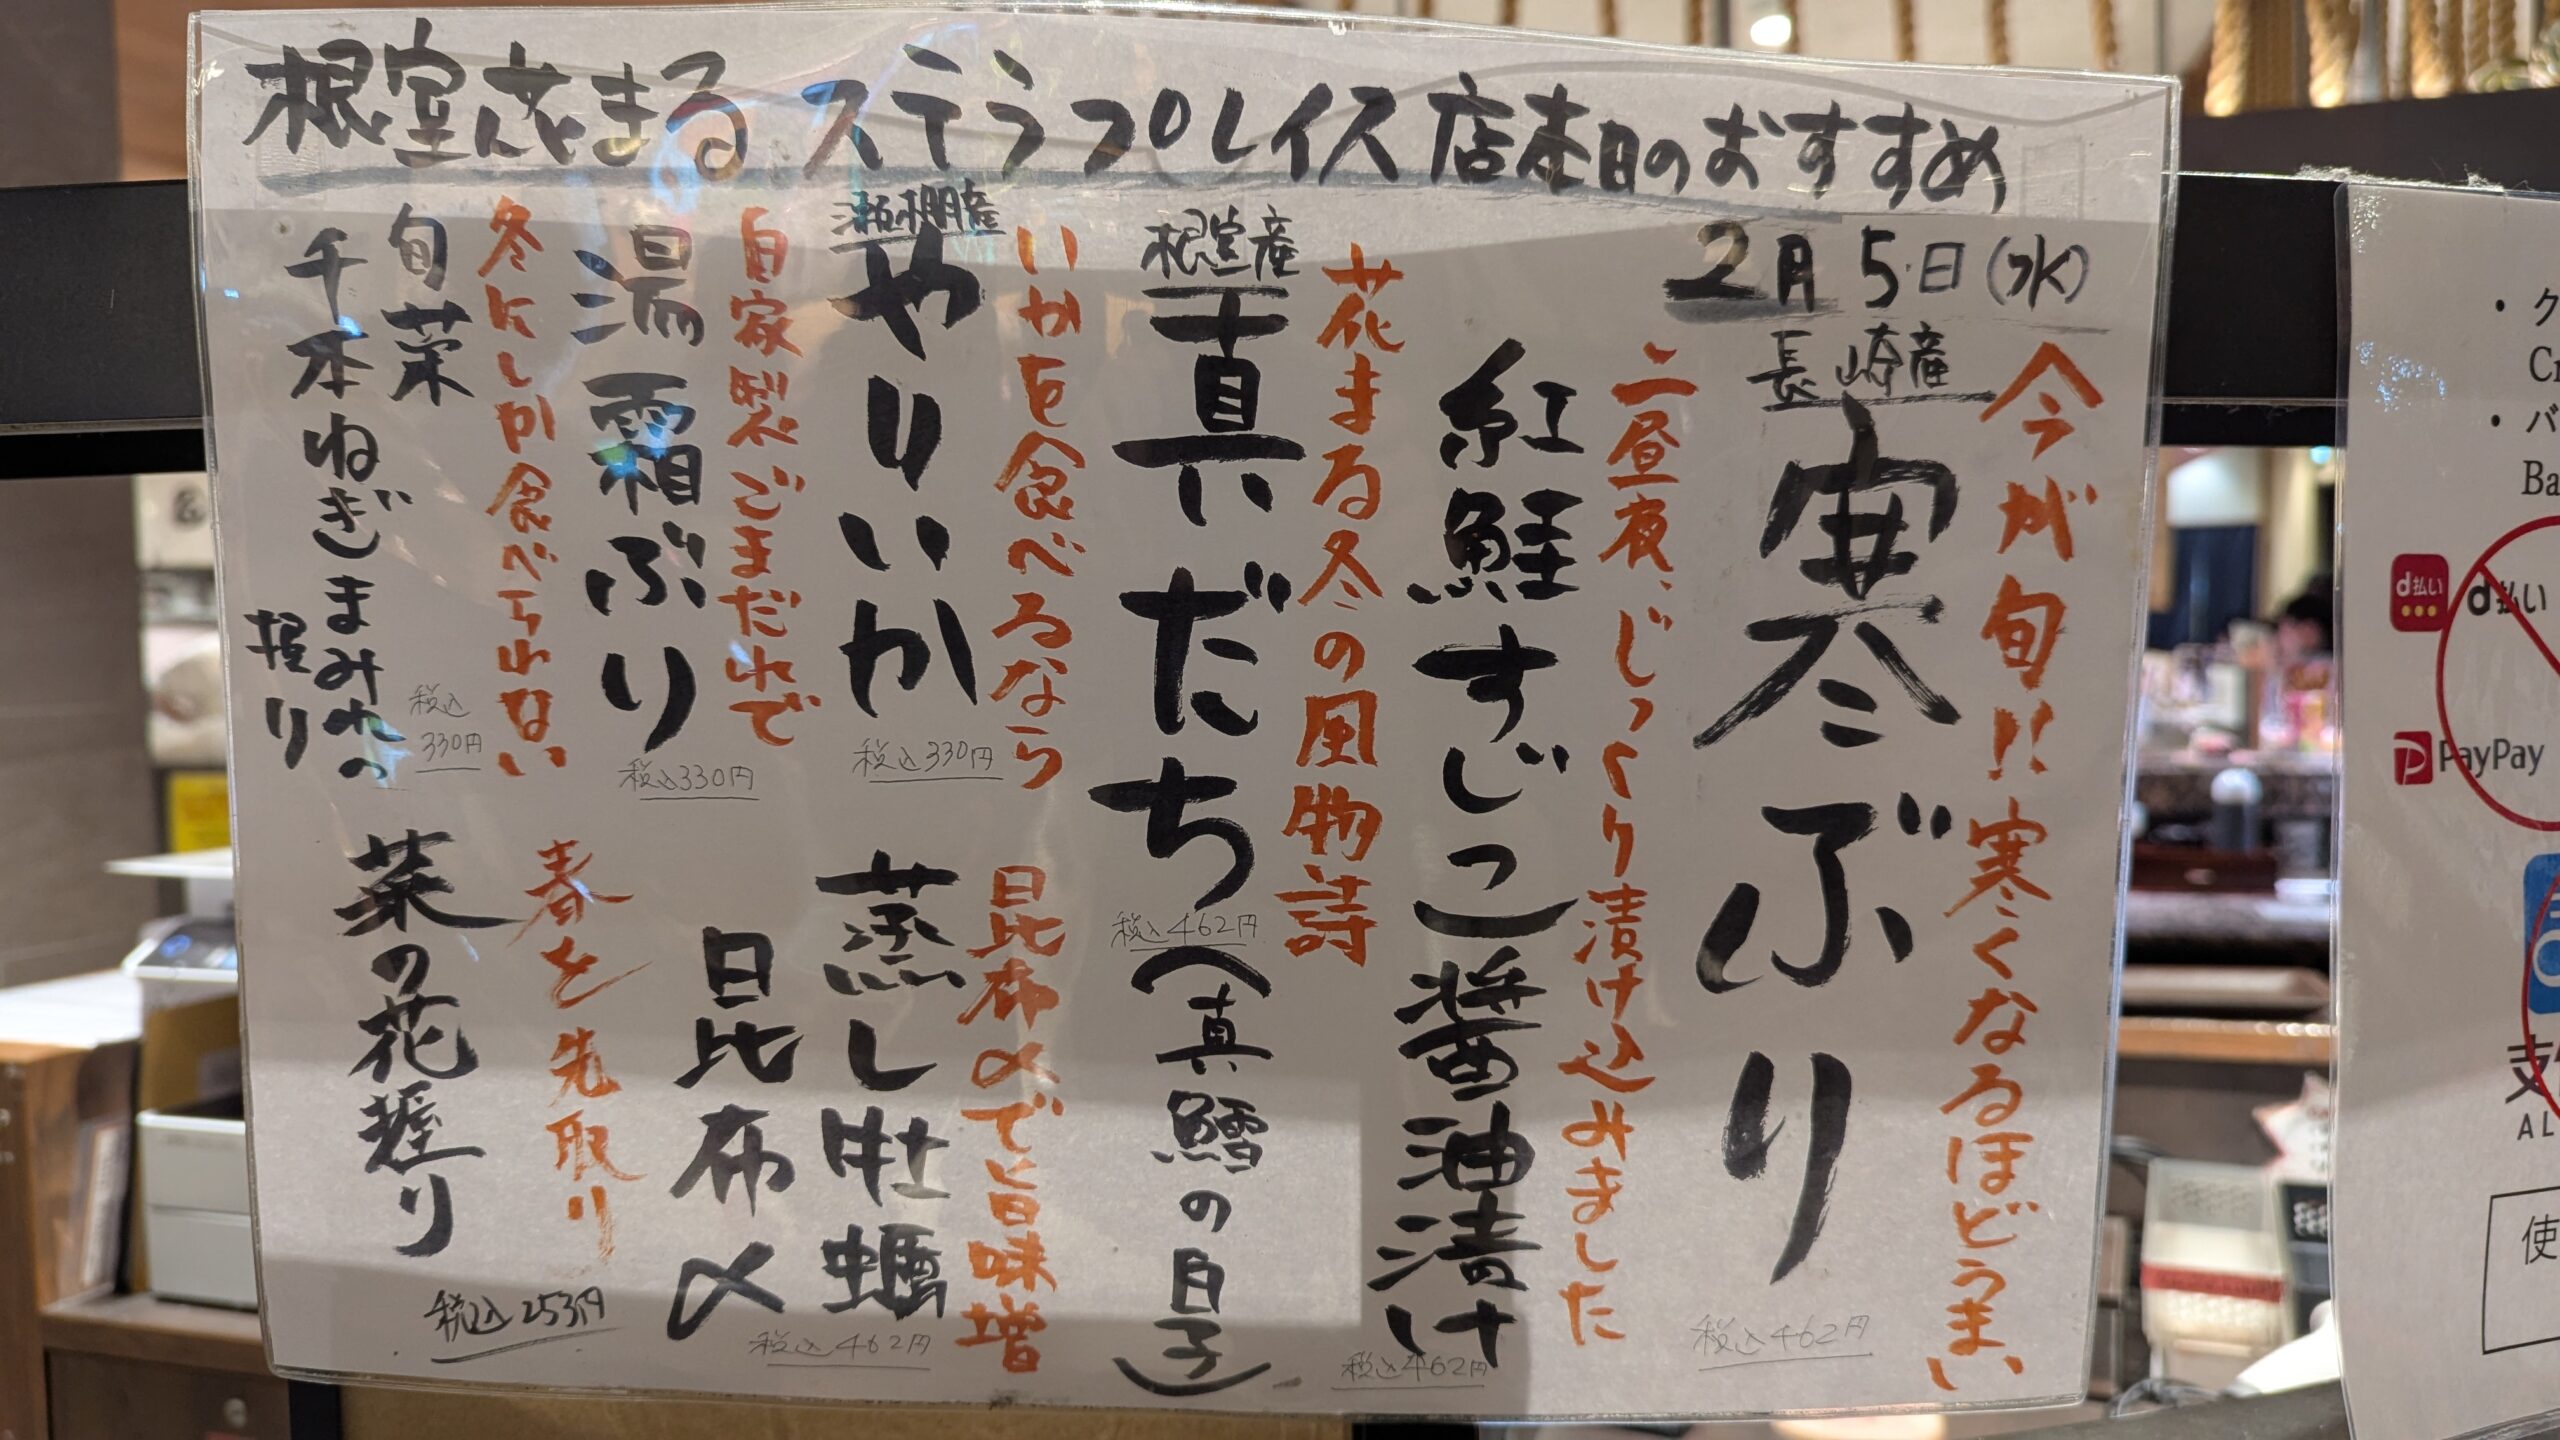 根室花まる ステラプレイス店本日のおすすめ
2月5日(水)
今が旬!!寒くなるほどうまい
長崎産
寒ぶり
税込462円
二昼夜、じっくり漬け込みました
紅鮭すじこ醤油漬け
税込462円
花まる冬の風物詩
根室産
真だち(真鱈の白子)
税込462円
いかを食べるなら
瀬棚産
やりいか
税込330円
昆布〆で旨味増
蒸し牡蠣
昆布〆
税込462円
自家製ごまだれで
湯霜ぶり
税込330円
冬にしか食べられない
旬菜
千本ねぎまみれの
握り
税込
330円
春を先取り
菜の花握り
税込253円
・ク
Cr
・バ
Ba
d払い
d払い
PayPay
支
AL
使